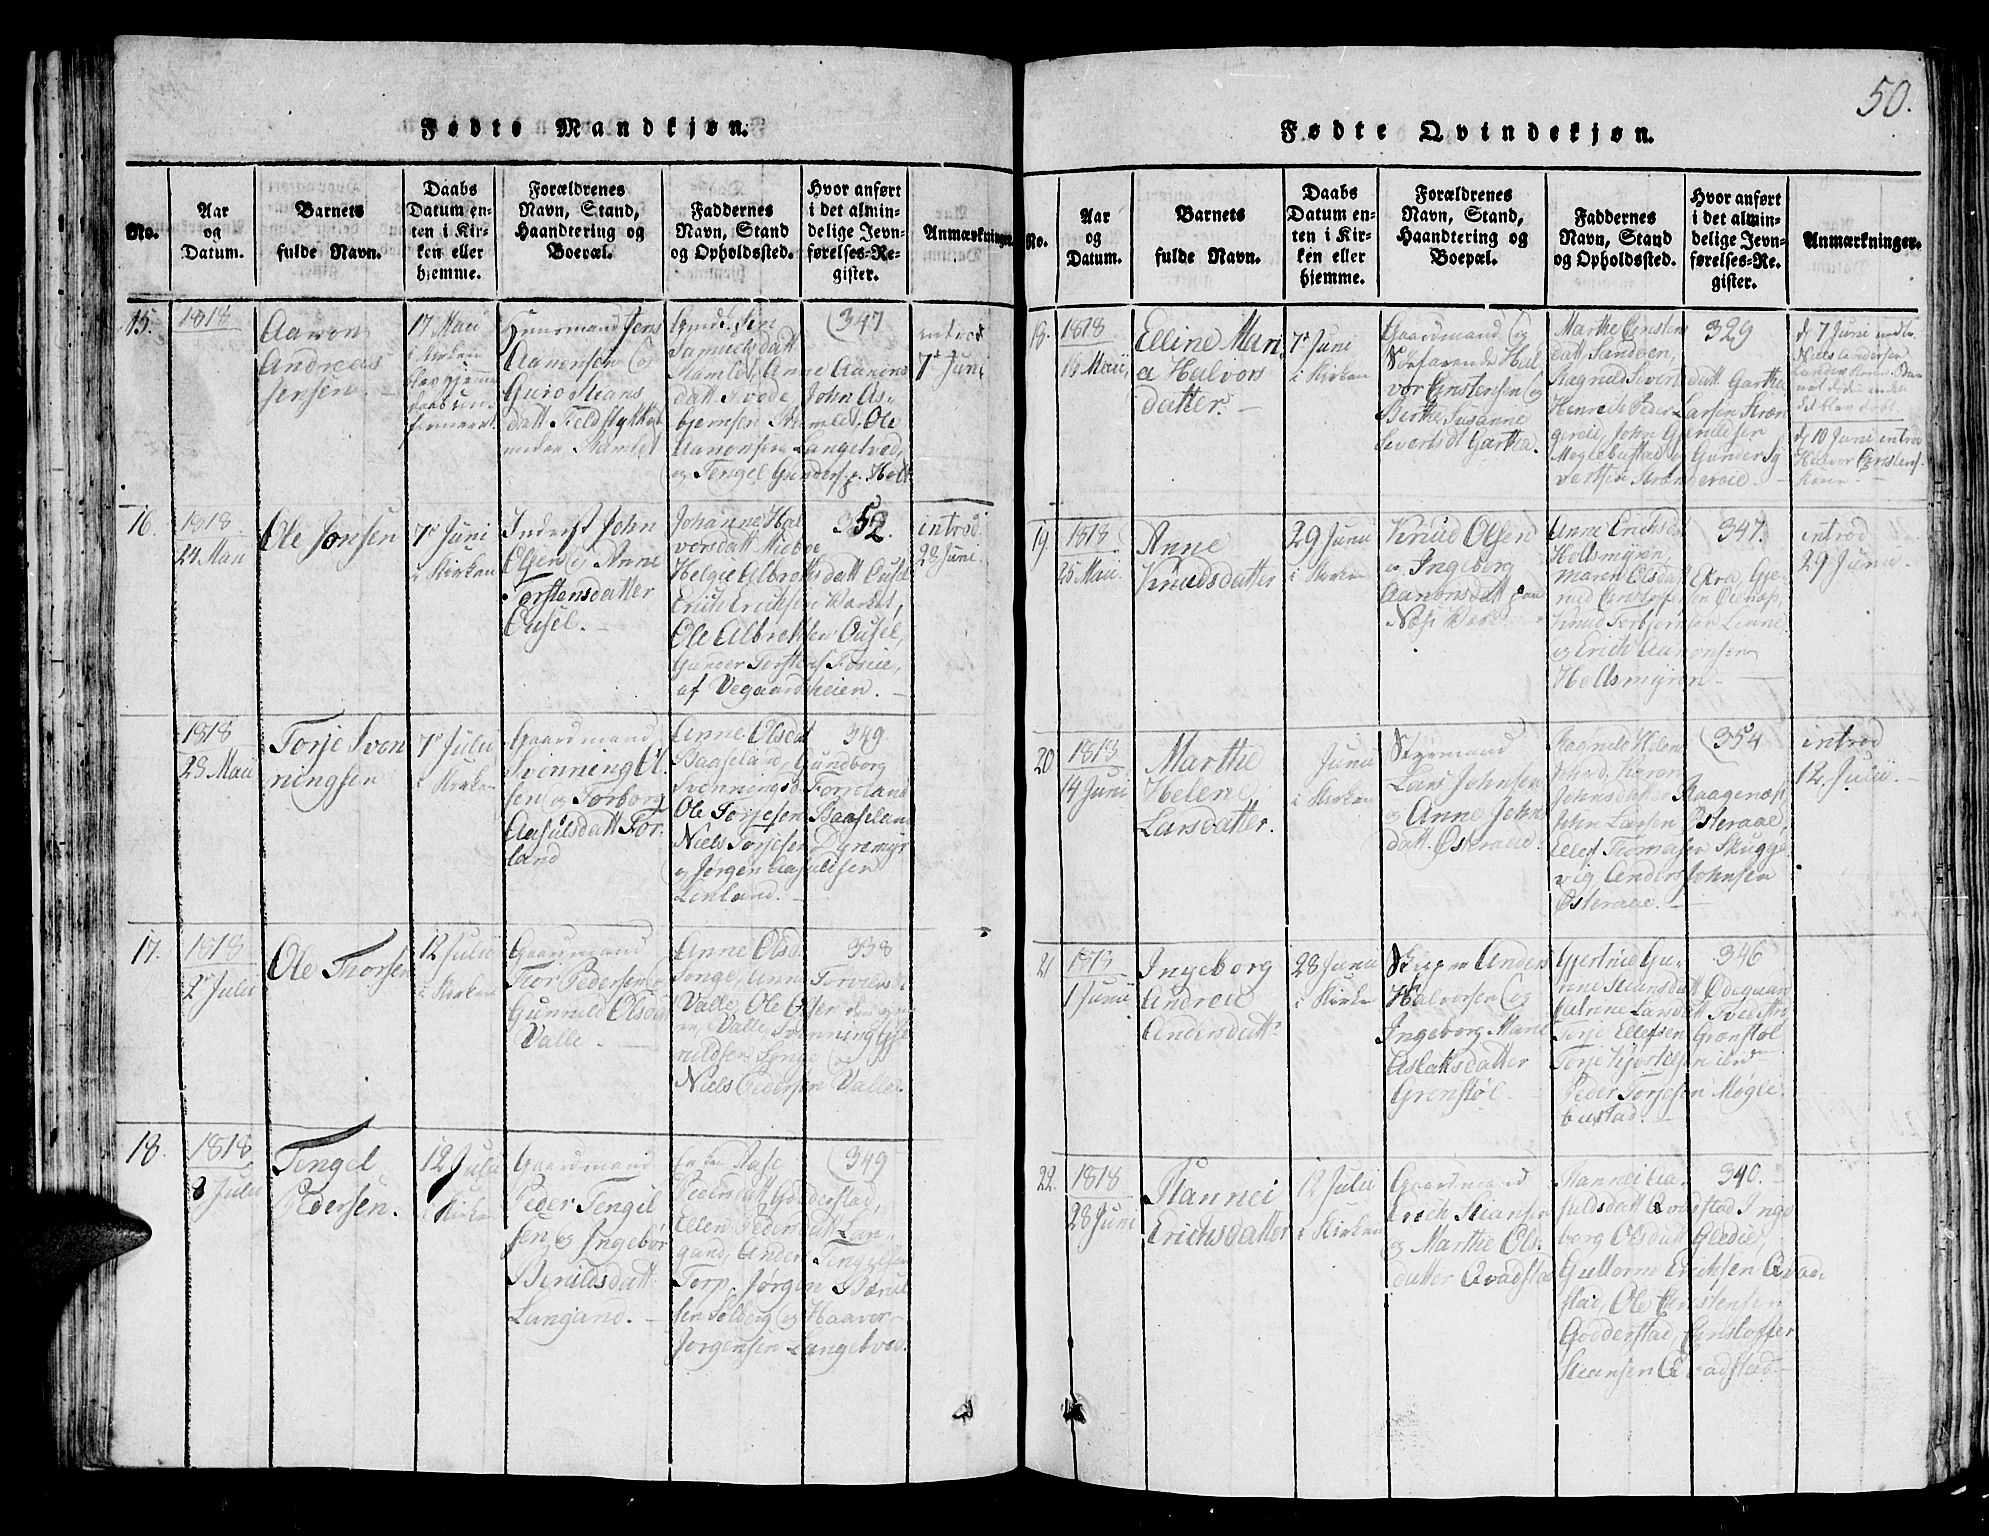 50.
Fødte Mandkjøn.
No.
Aar
og
Datum.
Barnets
fulde Navn.
Daabs
Datum en-
ten i Kir-
ken eller
hjemme.
Forældrenes
Navn, Stand,
Haandtering og
Boepæl.
Faddernes
Navn, Stand
og Opholdssted.
Hvor anført
i det almin-
delige Jevn-
førelses-Re-
gister.
Anmærkninger.
15.
1818
Aanon
Andreas
Jensen.
17 Maii
i Kirken
blev hjemme
daab
Huusmand Jens
Aanensen og
Guro Steans
datt Feldstykket
under Hamlet
Samuelsdatt
Hamlet, Anne Aanons
datt Svode, John As-
bjørnsen Hamlet, Ole
Aanonsen Langetved,
og Tengel Gunders. Holt
347
introd
7de Juni
16.
1818
24 Maii
Ole Jonsen
7de Juni
i Kirken
Inderst John
Olsen og Anne
Torstensdatter
Ousel.
Johanne Hal
vorsdatt Mieboe
Helgie Albretsdatt Ousel
Erich Ericksen
Ole Albretsen Ousel,
Gunder Torstens
af Vegaardsheien.
352.
introd.
28 Juni.
1818
23 Maii
Torje Sven
ningsen
7de Julii
i Kirken
Gaardmand
Svenning Ol
sen og Torborg
Aasulsdatt For
land
Anne Olsdatt
Baaseland, Gundborg
Svenningsd. Forreland
Ole Torjesen Baaseland
Niels Torjesen Dyremyr
og Jørgen Aasulsen
Lenland.
349
17.
1818
2de Julii
Ole Thorsen
12 Julii
i Kirken
Gaardmand
Tor Pedersen og
Gunnild Olsdatt
Valle.
Anne Olsd.
Songe, Anne
Valle, Ole Olsen
Valle, Svenning Gje
rulfsen Songe og
Niels Pedersen Valle.
338
18.
1818
8 Julii
Tengel
Pedersen.
12 Julii
i Kirken
Gaardmand
Peder Tengel
sen og Ingebor
Berulfsdatt
Langand.
Aase
Pedersdatt Godderstad,
Ellen Pedersdatt Lan-
gand, Anders Tengelsen
Torp, Jørgen Bærul
sen Solberg og Haaver
Jørgensen Langetved.
349
Fødte Qvindekjøn.
No.
Aar
og
Datum.
Barnets
fulde Navn.
Daabs
Datum en-
ten i Kir-
ken eller
hjemme.
Forældrenes
Navn, Stand,
Haandtering og
Boepæl.
Faddernes
Navn, Stand
og Opholdssted.
Hvor anført
i det almin-
delige Jevn-
førelses-Re-
gister.
Anmærkninger.
18.
1818
16 Maii
Elline Mari
a Halvors
datter.
7de Juni
i Kirken
Gaardmand og
Søefarende Hal
vor Cristensen og
Berthe Susanne
Severtsdt Gartha.
Marthe Cristens
datt Sandøen,
Ragnild Severts datt. Gartha
Henrich Peder Larsen Stræn
geroie, John Gjerulfsen
Møglebustad og Gunder Sy
vertsen Strængeroie.
329
d. 7 Juni
Niels Andersen
det blev døbt
d. 10 Juni introd
Halvor Cristens.
Kone.
19.
1818
25 Maii.
Anne
Knudsdatter
29 Junii
i Kirken
Knud Olsen
og Ingeborg
Aanonsdatt paa
Næs Værk
Anne Ericksd.
Holtsmyren,
Maren Olsdatt Ekra, Gje
rud Cristophersen
Knud Torbjørnsen
og Erich Aanonsen
Holtsmyren.
347.
introd
29 Junii.
20
1818
14 Juni
Marthe
Helene
Larsdatter.
Junii
i Kirken
Styrmand
Lars Johnsen
og Anne Johns
datt. Østeraae.
Ragnild Helene
Johnsd, Karen
Johnsdatter Kaagenæs,
John Larsen Østeraae,
Ellef Thomasen Skugge
vig Anders Johnsen
Østeraae.
354
introd
12 Julii.
21
1818
1 Junii
Ingeborg
Andrea
Andersdattr
28 Junii
i Kirken
Skipper Anders
Halvorsen og
Ingeborg Marie
Aslaksdatter
Grønstøl.
Gjertrud Gu-
nne Steansdatt Ødegaard
Catrine Larsdatt
Torje Ellefsen Grønstøl
Torje Kjostelsen
Peder Torjesen Møgle
bustad.
346
22.
1818
28 Juni
Stannei
Erichsdatter
12 Julii
i Kirken
Gaardmand
Erich Steansen
og Marthe Ols
datter Qvadstad
Stannei Aa-
sulsdatt Qvadstad Inge
borg Olsdatt Glædie,
Guttorm Ericksen Qvad
stad, Ole Cristensen
Godderstad, Cristoffer
Steansen Qvadstad
340.